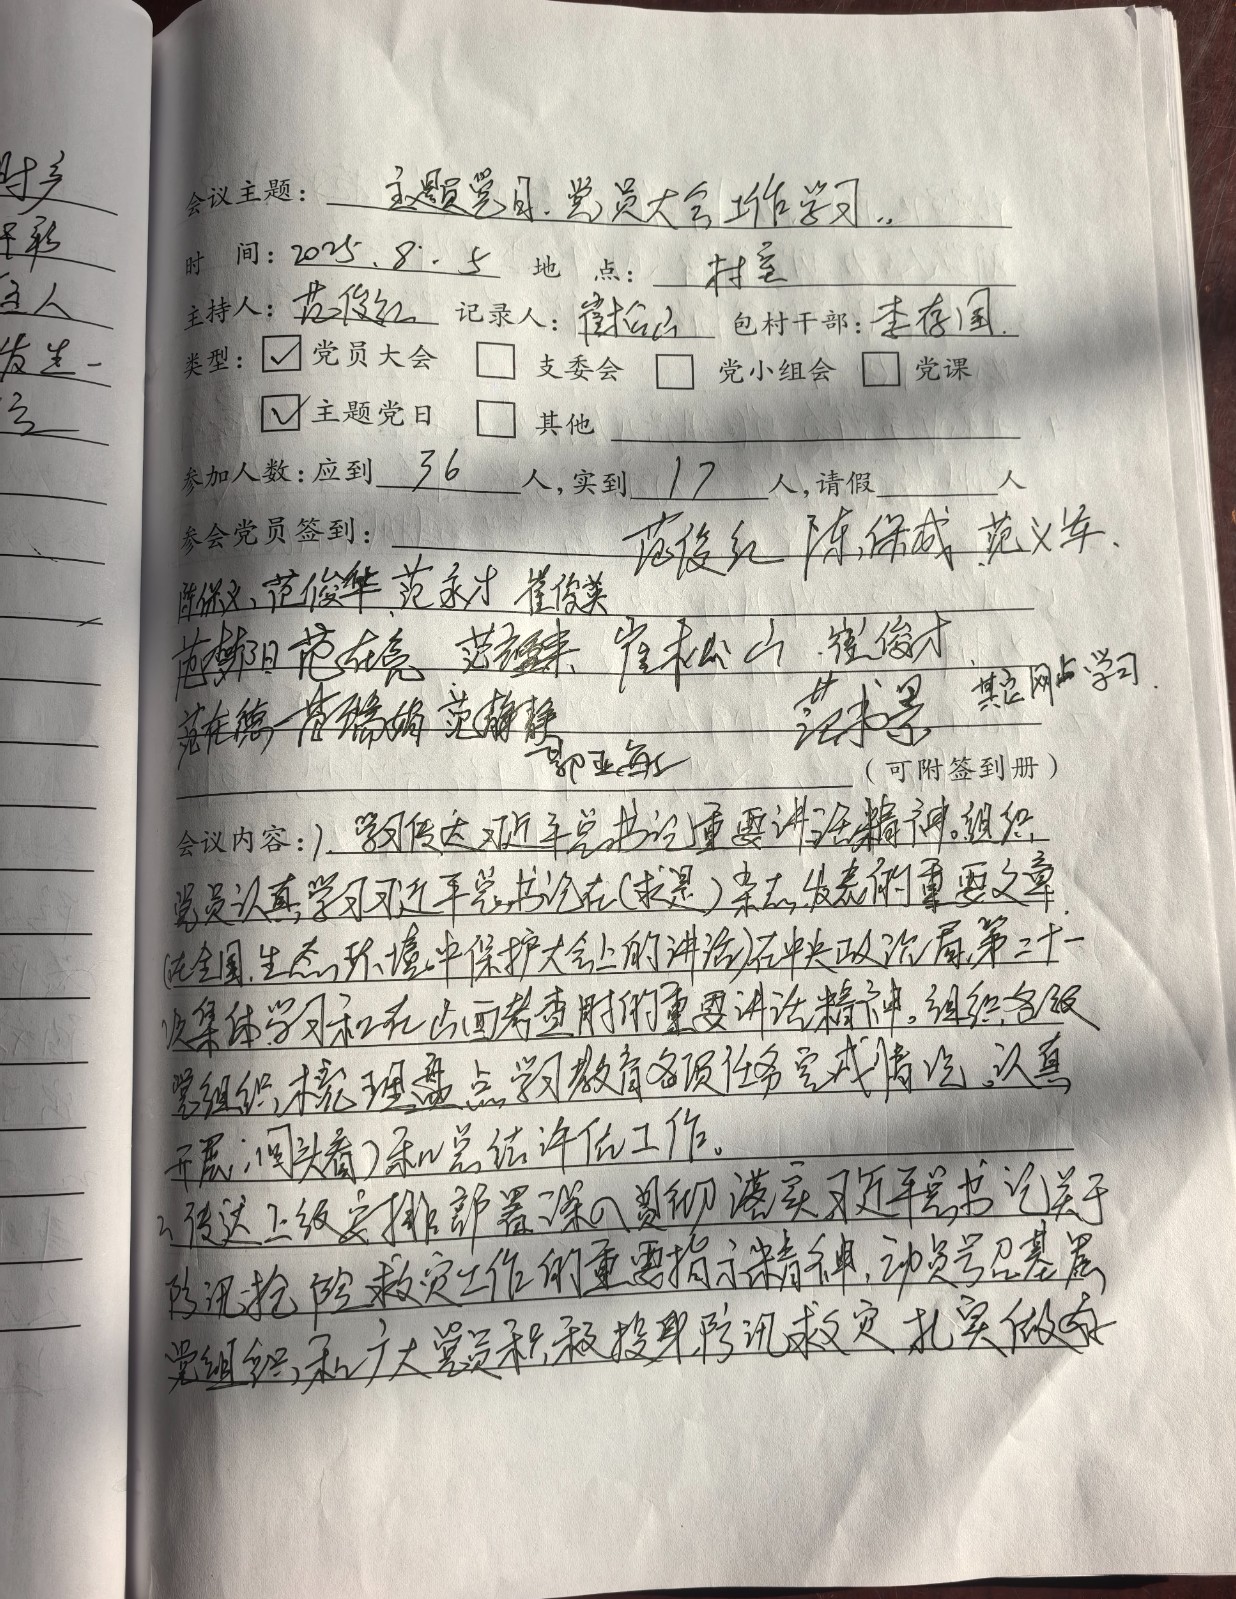 时多
主人
发生一
会议主题：主题党日、党员大会工作学习..
时 间：2025.8.5 地 点：村室
主持人：范俊红 记录人：崔松山 包村干部：李存国.
类型：☑党员大会 □支委会 □党小组会 □党课
☑主题党日 □其他
参加人数：应到36人，实到17人，请假 人
参会党员签到：范俊红 陈保成 范义军.
陈保义、范俊华 范永才 崔俊英
范朝阳 范在亮 崔松山 崔俊才
范在德 范静静 范书景 其它网上学习.
郭亚海
（可附签到册）
会议内容：1、学习传达习近平总书记重要讲话精神。组织
党员认真学习习近平总书记在（求是）杂志发表的重要文章
（在全国生态环境中保护大会上的讲话）在中央政治局第二十一
次集体学习和在山西考查时的重要讲话精神。组织各级
党组织梳理盘点学习教育各项任务完成情况，认真
开展（回头看）和总结评估工作。
2、传达上级安排部署深入贯彻落实习近平总书记关于
防汛抢险救灾工作的重要指示精神，动员号召基层
党组织和广大党员积极投身防汛救灾扎实做好